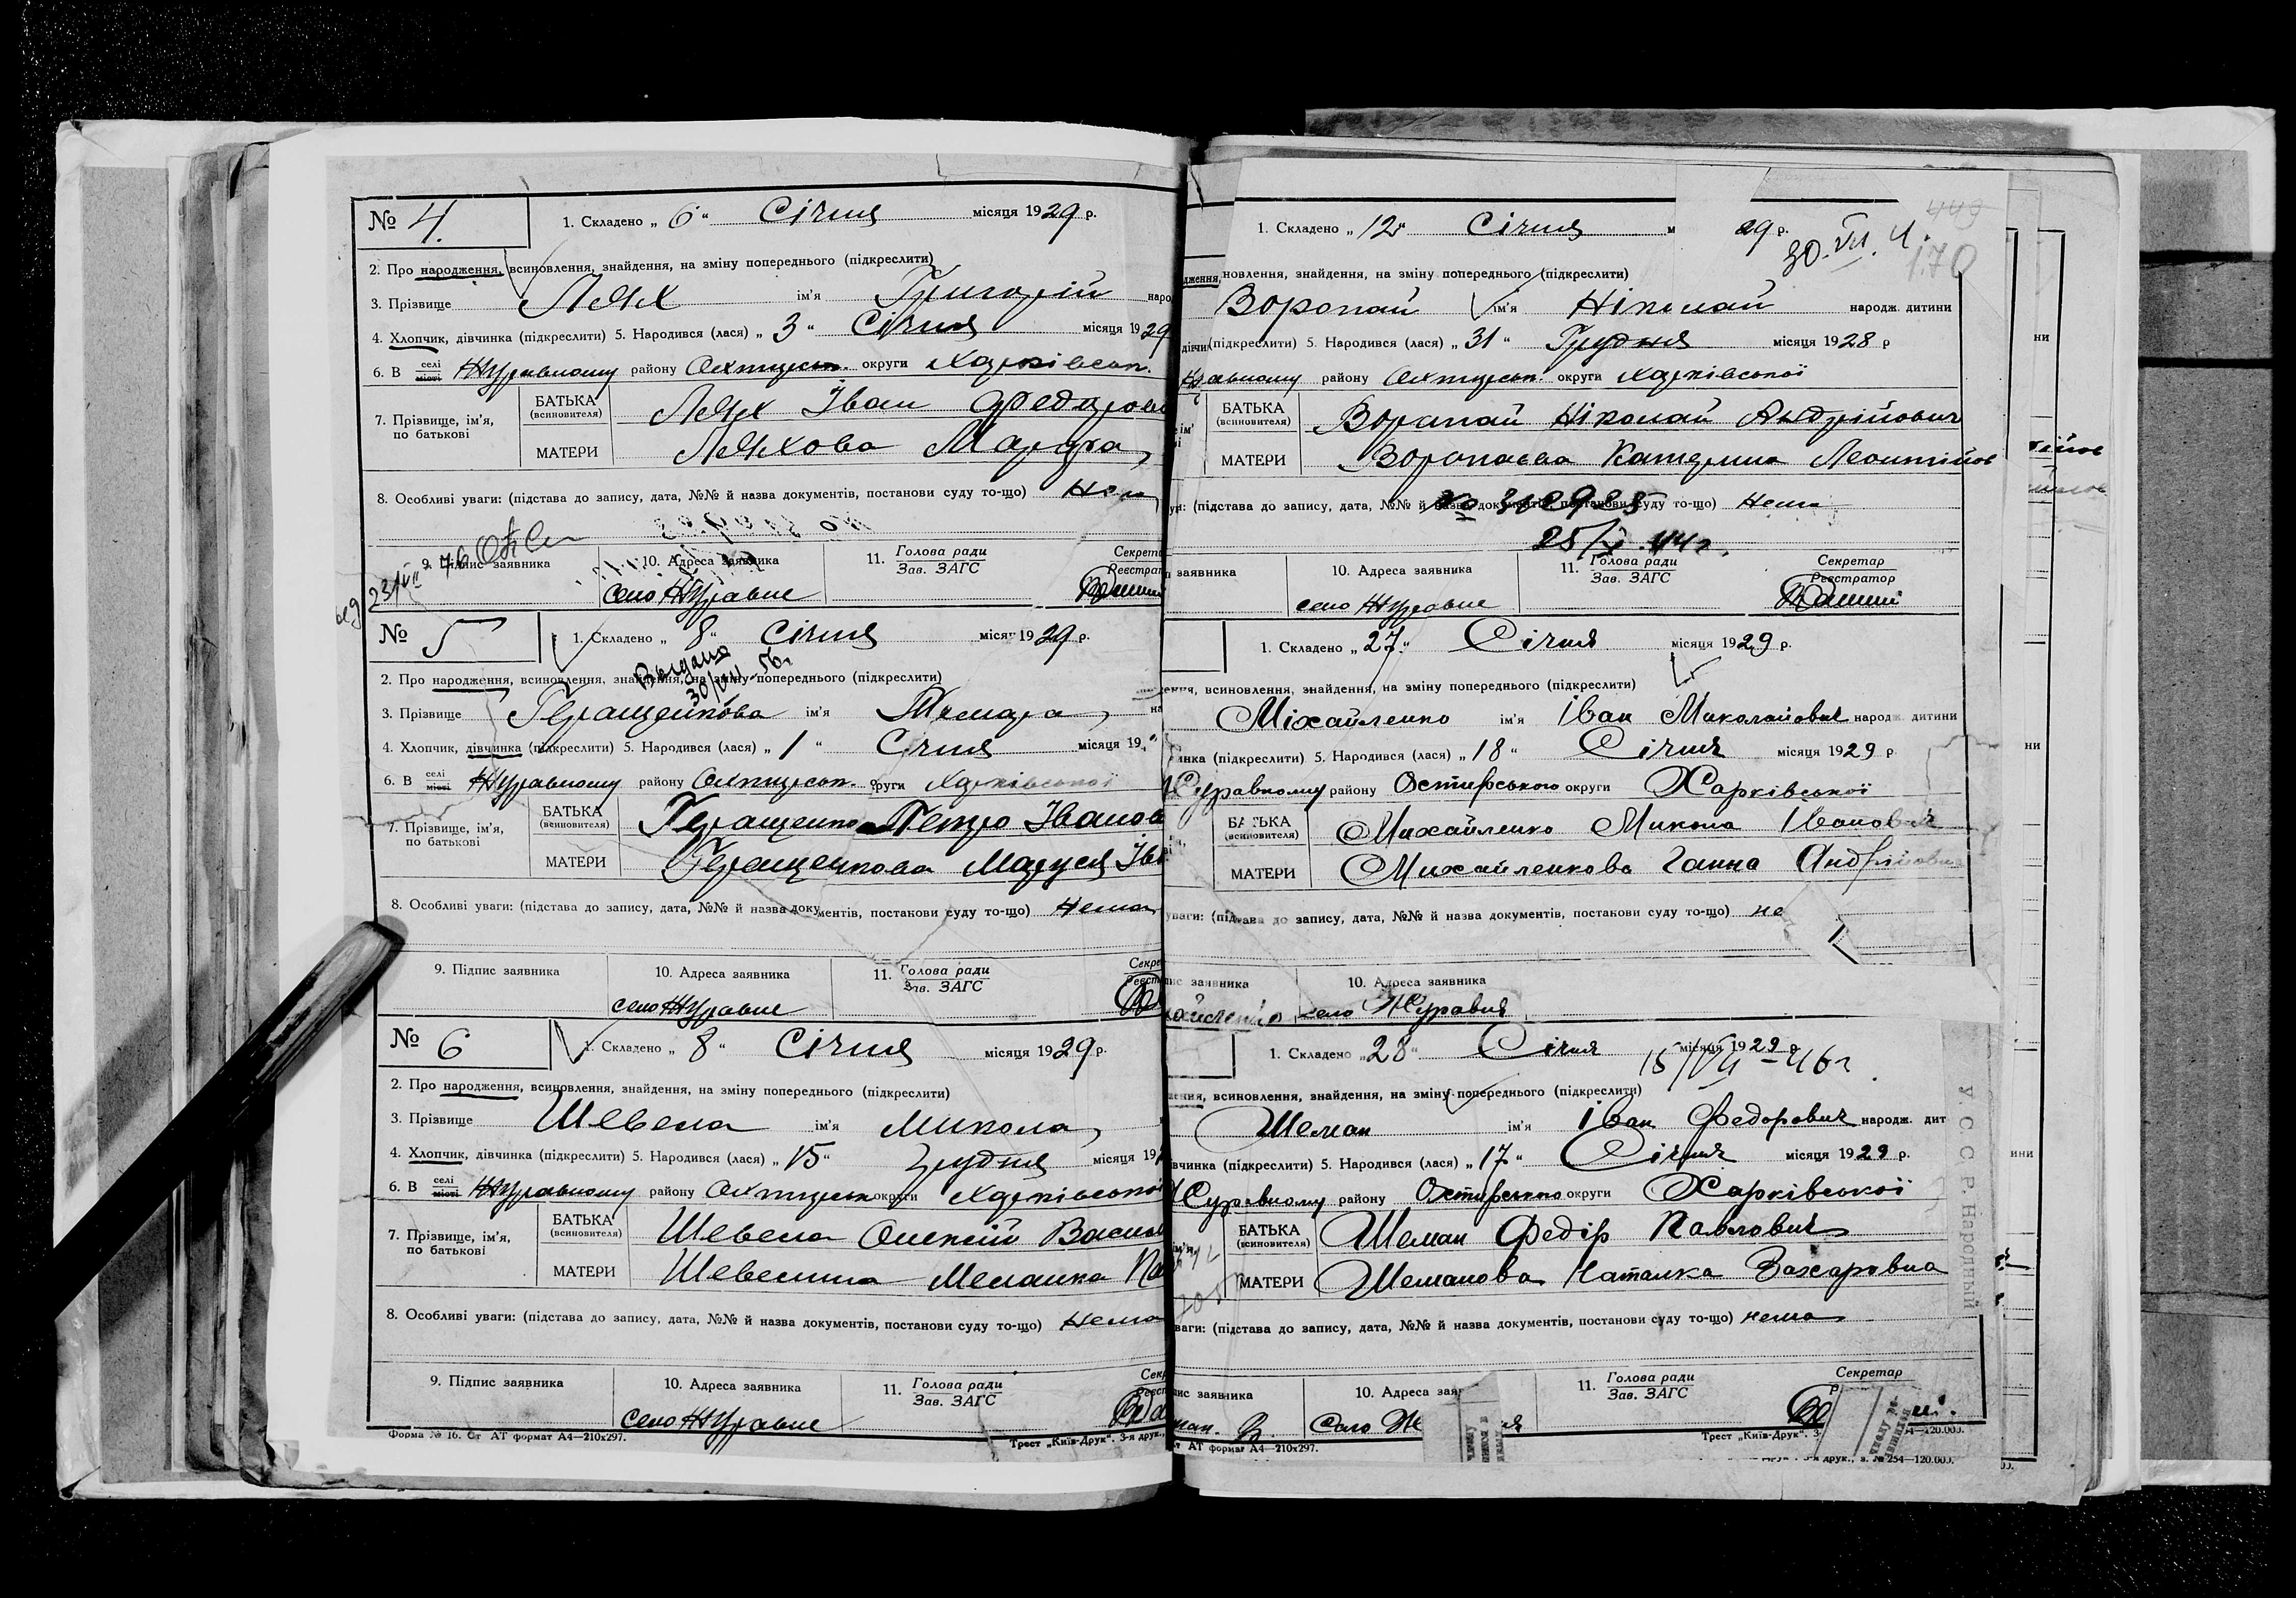 № 4. 1. Складено „ 6 “ Січня місяця 1929 р.
2. Про народження, всиновлення, знайдення, на зміну попереднього (підкреслити)
3. Прізвище Лях ім'я Григорій наро
4. Хлопчик, дівчинка (підкреслити) 5. Народився (лася) „ 3 “ Січня місяця 1929
6. В селі місті Журавному району Охтирськ. округи Харківськ.
7. Прізвище, ім'я, по батькові
БАТЬКА (всиновителя) Лях Іван Федорови
МАТЕРИ Ляхова Марфа
8. Особливі уваги: (підстава до запису, дата, №№ й назва документів, постанови суду то-що) Нема
9. Підпис заявника 10. Адреса заявника 11. Голова ради Зав. ЗАГС Секрета Реєстрат
село Журавне
№ 5 1. Складено „ 8 “ Січня місяц 1929 р.
Выдано 30/VII-56г
2. Про народження, всиновлення, знайдення, на зміну попереднього (підкреслити)
3. Прізвище Геращенкова ім'я Тамара на
4. Хлопчик, дівчинка (підкреслити) 5. Народився (лася) „ 1 “ Січня місяця 19
6. В селі місті Журавному району Охтирськ. округи Харківської
7. Прізвище, ім'я, по батькові
БАТЬКА (всиновителя) Геращенко Петро Іванов
МАТЕРИ Геращенкова Маруся Ів
8. Особливі уваги: (підстава до запису, дата, №№ й назва документів, постанови суду то-що) Нема
9. Підпис заявника 10. Адреса заявника 11. Голова ради Зав. ЗАГС Секре Реєст
село Журавне
№ 6 1. Складено „ 8 “ Січня місяця 1929 р.
2. Про народження, всиновлення, знайдення, на зміну попереднього (підкреслити)
3. Прізвище Шевела ім'я Микола
4. Хлопчик, дівчинка (підкреслити) 5. Народився (лася) „ 15 “ Грудня місяця 19
6. В селі місті Журавному району Охтирськ округи Харківської
7. Прізвище, ім'я, по батькові
БАТЬКА (всиновителя) Шевела Олексій Васил
МАТЕРИ Шевелина Меланка Па
8. Особливі уваги: (підстава до запису, дата, №№ й назва документів, постанови суду то-що) Нема
9. Підпис заявника 10. Адреса заявника 11. Голова ради Зав. ЗАГС Сек Реєст
село Журавне
Форма № 16. Ст АТ формат А4—210х297. Трест „Київ-Друк“. 3-я друк.,
1. Складено „ 12 “ Січня м 29 р.
449
170
дження, новлення, знайдення, на зміну попереднього (підкреслити)
Воропай ім'я Ніколай народж. дитини
дівчин (підкреслити) 5. Народився (лася) „ 31 “ Грудня місяця 1928 р
Журавному району Охтирськ. округи Харківської
БАТЬКА (всиновителя) Воропай Ніколай Андрійович
МАТЕРИ Воропаева Катерина Леонтійов
(підстава до запису, дата, №№ й назва документів, постанови суду то-що) Нема
25/X.44г.
заявника 10. Адреса заявника 11. Голова ради Зав. ЗАГС Секретар Реєстратор
село Журавне
1. Складено „ 27. “ Січня місяця 1929 р.
ення, всиновлення, знайдення, на зміну попереднього (підкреслити)
Міхайленко ім'я Іван Миколайович народж дитини
инка (підкреслити) 5. Народився (лася) „ 18 “ Січня місяця 1929 р
Журавному району Охтирського округи Харківської
БАТЬКА (всиновителя) Михайленко Микола Іванович
МАТЕРИ Михайленкова Ганна Андріївна
уваги: (підстава до запису, дата, №№ й назва документів, постанови суду то-що) не
пис заявника 10. Адреса заявника
село Журавня
1. Складено „ 28 “ Січня місяця 1929 р
15/VII-46г.
ення, всиновлення, знайдення, на зміну попереднього (підкреслити)
Шеман ім'я Іван Федорович народж. дит
вчинка (підкреслити) 5. Народився (лася) „ 17 “ Січня місяця 1929 р.
Журавному району Охтирського округи Харківської
БАТЬКА (всиновителя) Шеман Федір Павлович
МАТЕРИ Шеманова Наталка Захаровна
ваги: (підстава до запису, дата, №№ й назва документів, постанови суду то-що) нема
пис заявника 10. Адреса зая 11. Голова ради Зав. ЗАГС Секретар
ман. Село Ж
АТ формат А4—210х297. Трест „Київ-Друк“. 3-
я друк., з. № 254—120.000.
У С С Р. Народный